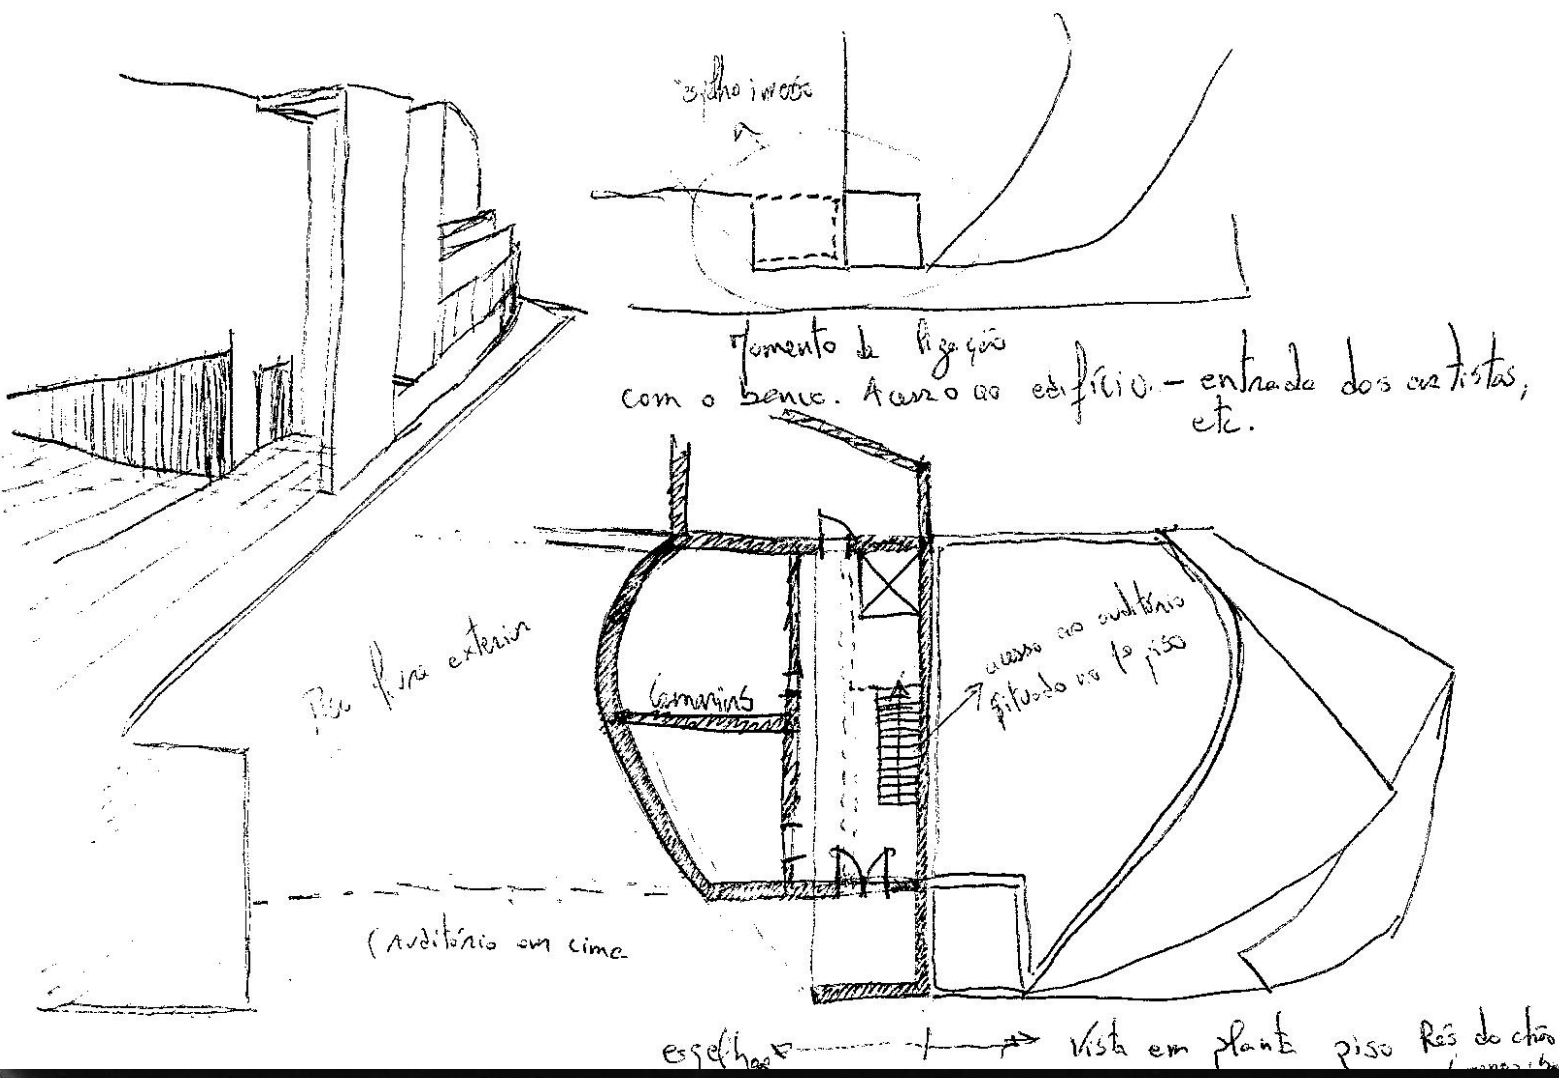 espelho inverso
Momento de ligação
com o banco. Acesso ao edifício. - entrada dos artistas,
etc.
exterior
Camarins
acesso ao auditório
situado no 1º piso
(Auditório em cima
espelhos
Vista em planta piso Rés do chão